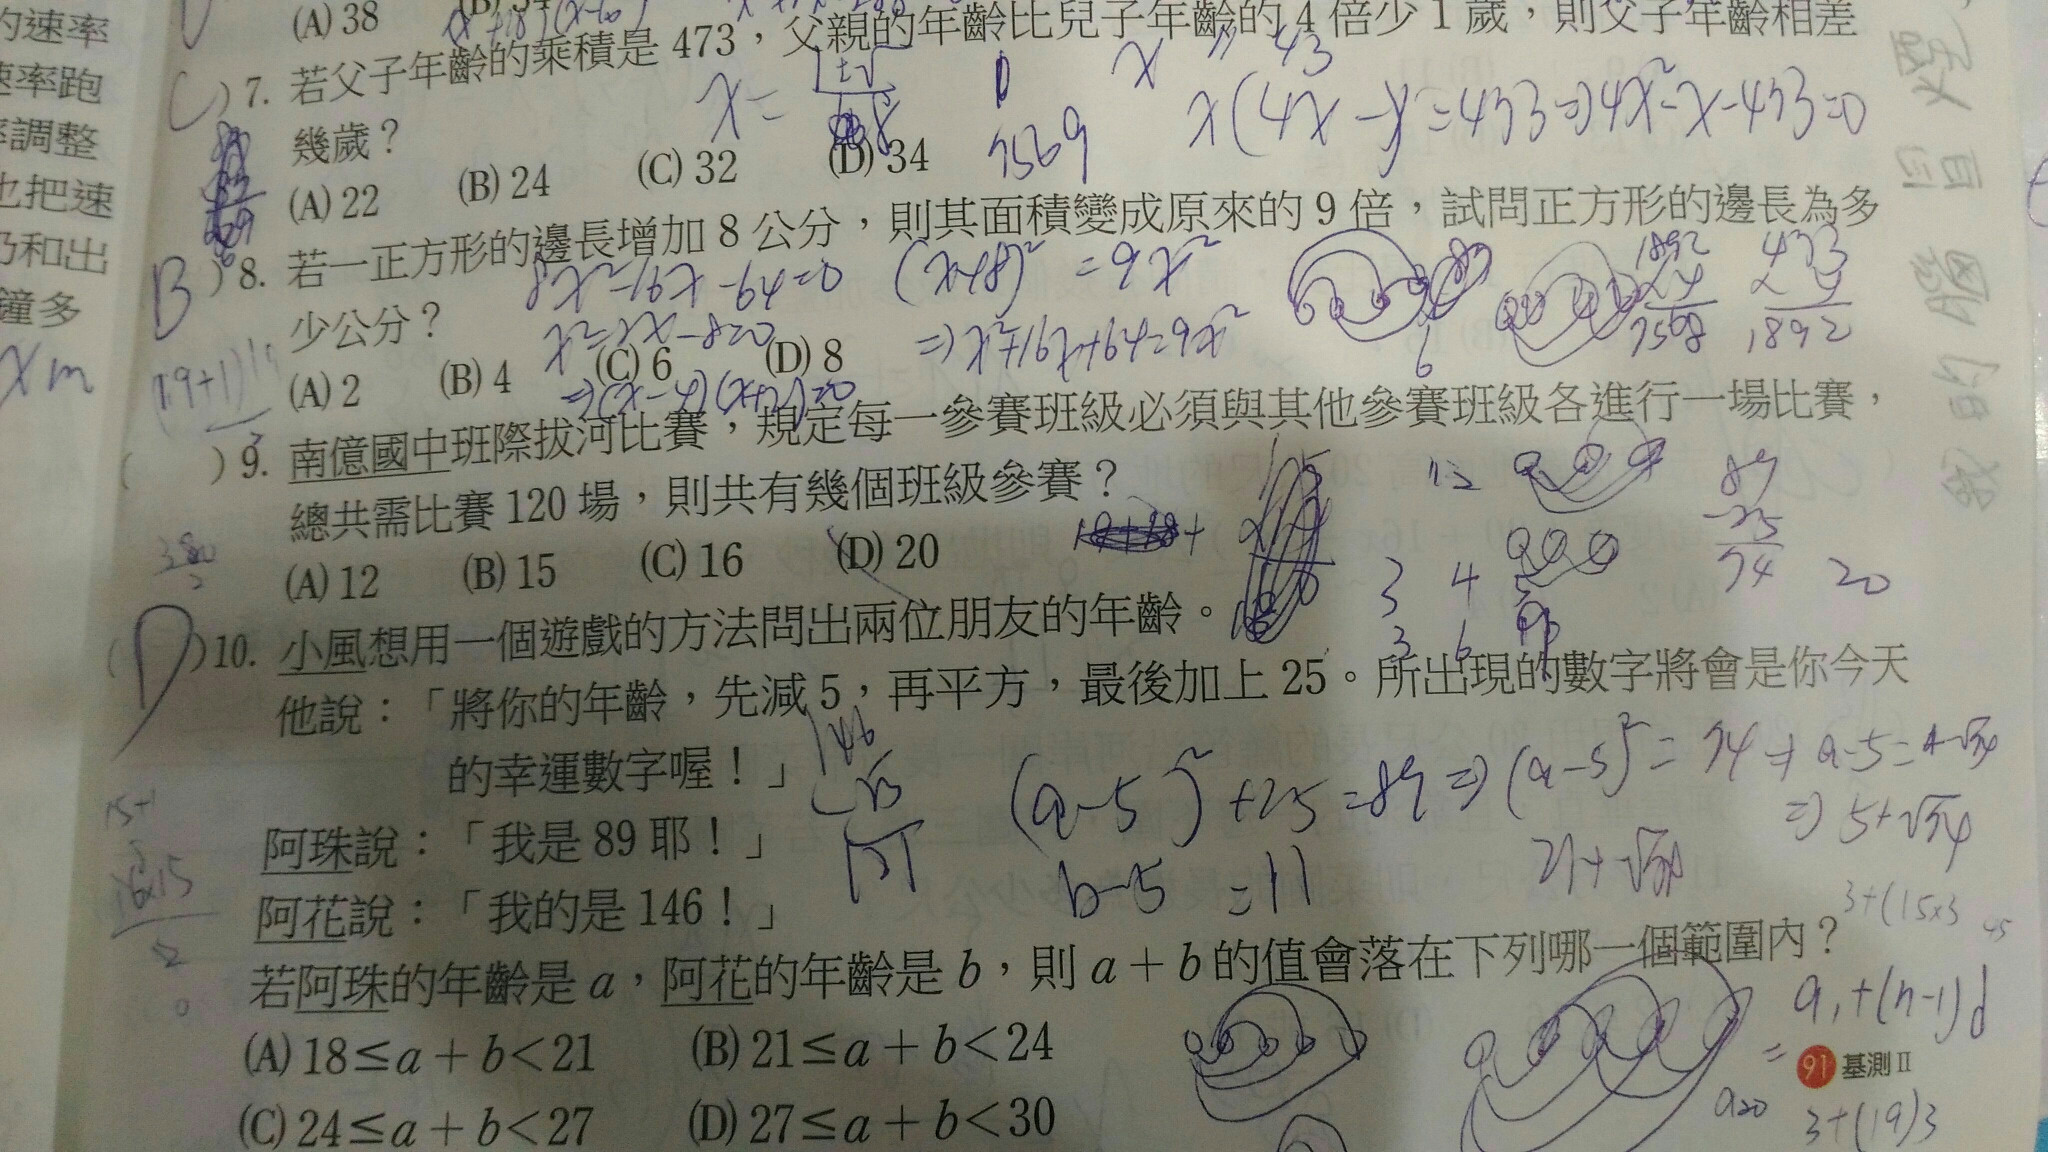 的速率
速率跑
率調整
也把速
仍和出
鐘多
(A) 38
C ) 7. 若父子年齡的乘積是 473，父親的年齡比兒子年齡的 4 倍少 1 歲，則父子年齡相差
幾歲？
x(4x-1)=473⇒4x²-x-473=0
7569
(A) 22 (B) 24 (C) 32 (D) 34
B ) 8. 若一正方形的邊長增加 8 公分，則其面積變成原來的 9 倍，試問正方形的邊長為多
少公分？
8x²-16x-64=0
(x+8)²=9x²
x²-2x-8=0
=(x²+16x+64=9x²
⇒(x-4)(x+2)=0
1892
×4
7568
473
×4
1892
6
(A) 2 (B) 4 (C) 6 (D) 8
(19+1)19
2
( ) 9. 南億國中班際拔河比賽，規定每一參賽班級必須與其他參賽班級各進行一場比賽，
總共需比賽 120 場，則共有幾個班級參賽？
(A) 12 (B) 15 (C) 16 (D) 20
380
2
12
3 4 5
3 6
20
(D) 10. 小風想用一個遊戲的方法問出兩位朋友的年齡。
他說：「將你的年齡，先減 5，再平方，最後加上 25。所出現的數字將會是你今天
的幸運數字喔！」
146
-25
121
(a-5)²+25=89⇒(a-5)²=74
⇒5+√74
b-5=11
21+√74
阿珠說：「我是 89 耶！」
阿花說：「我的是 146！」
15+1
16×15
2
3+(15×3
45
若阿珠的年齡是 a，阿花的年齡是 b，則 a＋b 的值會落在下列哪一個範圍內？
(A) 18≦a＋b＜21 (B) 21≦a＋b＜24
(C) 24≦a＋b＜27 (D) 27≦a＋b＜30
a₁+(n-1)d
=
91 基測Ⅱ
a20
3+(19)3